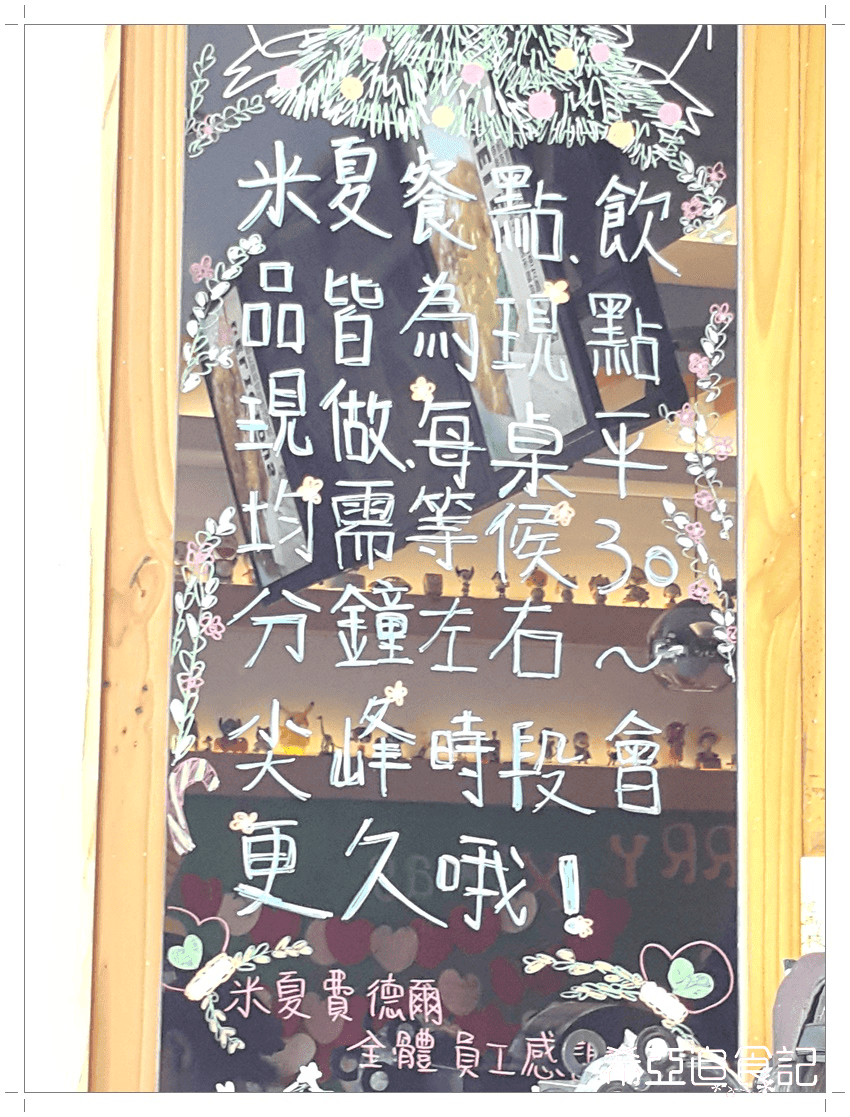 米夏餐點、飲
品皆為現點
現做、每桌平
均需等候30
分鐘左右～
尖峰時段會
更久哦!
RRY X
as
米夏費德爾
全體員工感
亞自食記